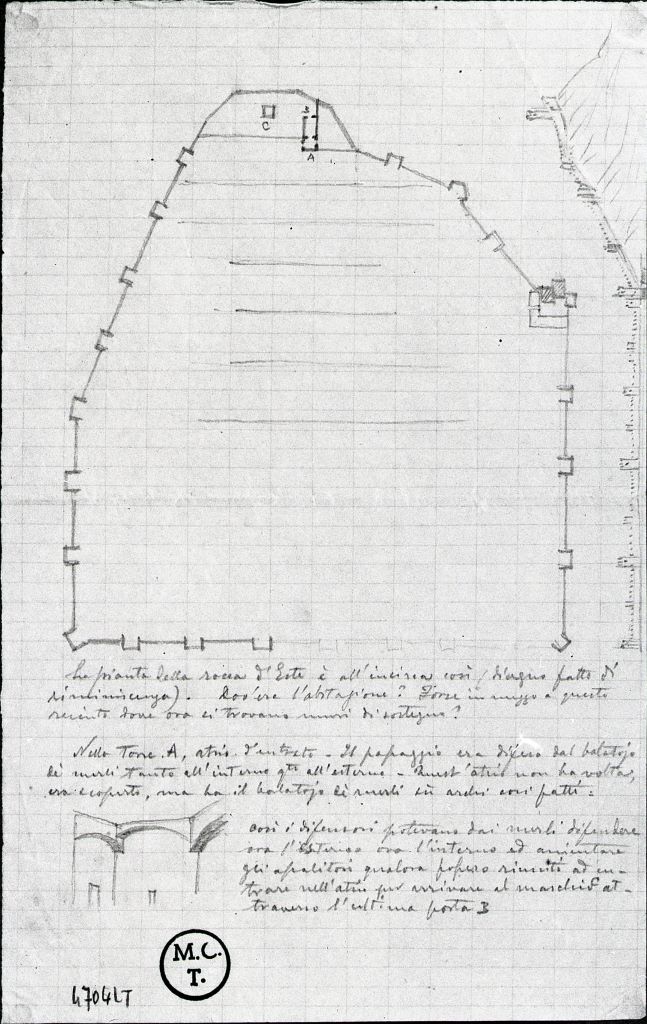 C
B
A
La pianta della rocca d'Este è all'incirca così (disegno fatto di
riminiscenza). Dov'era l'abitazione? Forse in mezzo a questo
recinto dove ora si trovano muri di sostegno?
Nella Torre A, atrio d'entrata - Il passaggio era difeso dal balatojo
dei merli tanto all'interno qto all'esterno - Quest'atrio non ha volta,
era scoperto, ma ha il balatojo dei merli su archi così fatti:
così i difensori potevano dai merli difendere
ora l'esterno ora l'interno ed
gli assalitori qualora fossero riusciti ad en-
trare nell'atrio per arrivare al maschio C at-
traverso l'ultima porta B
M.C.
T.
4704LT